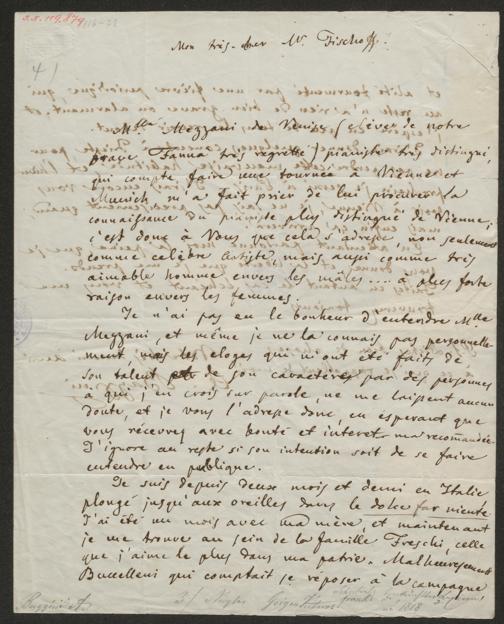 Mon très-cher Mr. Fischoff!
4)
Mlle Mezzani de Venise (élève de notre
brave Fanna très regretté) pianiste très distingué,
qui compte faire une tournée à Vienne et
Munich m'a fait prier de lui procurer la
connaissance du pianiste plus distingué de Vienne;
c'est donc à Vous que cela s'adresse non seulement
comme celèbre Artiste, mais aussi comme très
aimable homme envers les mâles... a plus forte
raison envers les femmes.
Je n'ai pas eu le bonheur d'entendre Mlle
Mezzani, et même je ne la connais pas personnelle-
ment, mais les eloges qui m'ont été faits de
son talent et de son caractère par des personnes
à qui j'en crois sur parole, ne me laissent aucun
doute, et je vous l'adresse donc, en esperant que
vous recevrez avec bonté et interet ma recomandée.
J'ignore au reste si son intention soit de se faire
entendre en publique.
Je suis depuis deux mois et demi en Italie,
plongé jusqu'aux oreilles dans le dolce far niente
J'ai été un mois avec ma mère, et maintenant
je me trouve au sein de la famille Freschi, celle
que j'aime le plus dans ma patrie. Malheureusement
Buccelleni qui comptait se reposer à la campagne